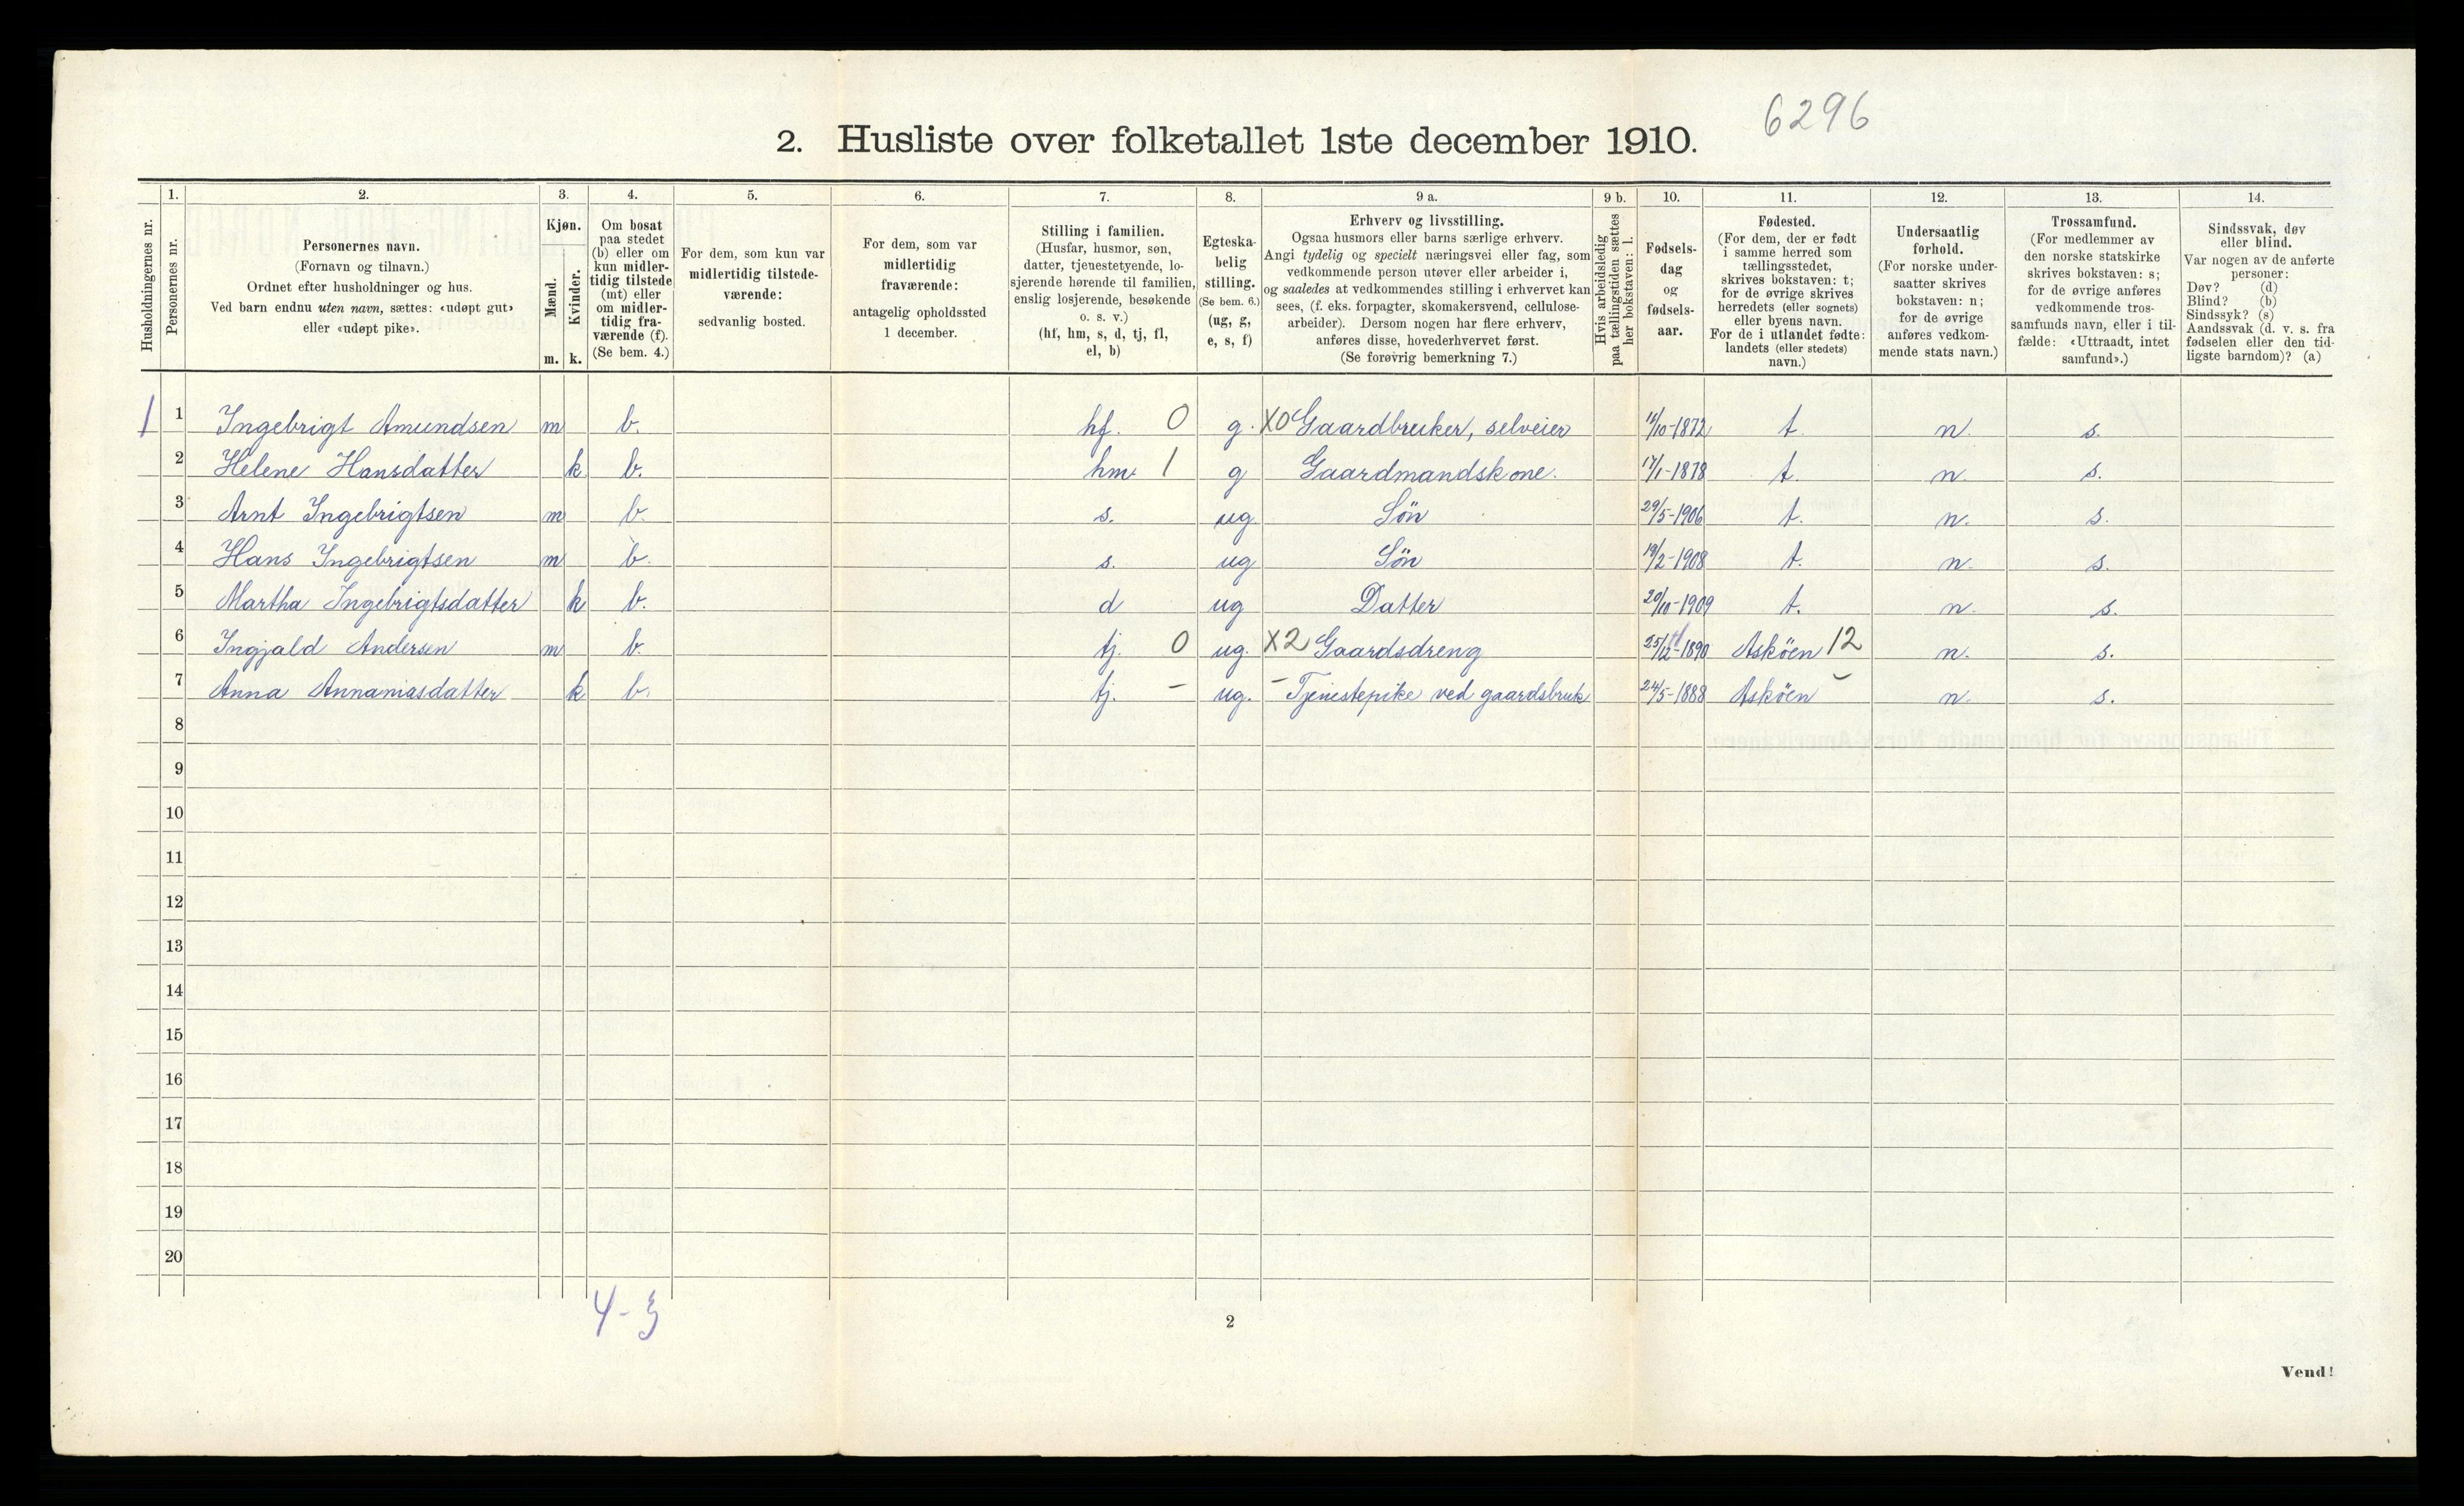 6296
2. Husliste over folketallet 1ste december 1910.
Husholdningernes nr.
1. Personernes nr.
2. Personernes navn.
(Fornavn og tilnavn.)
Ordnet efter husholdninger og hus.
Ved barn endnu uten navn, sættes: «udøpt gut»
eller «udøpt pike».
3. Kjøn.
Mænd. m.
Kvinder. k.
4. Om bosat
paa stedet
(b) eller om
kun midler-
tidig tilstede
(mt) eller
om midler-
tidig fra-
værende (f).
(Se bem. 4.)
5. For dem, som kun var
midlertidig tilstede-
værende:
sedvanlig bosted.
6. For dem, som var
midlertidig
fraværende:
antagelig opholdssted
1 december.
7. Stilling i familien.
(Husfar, husmor, søn,
datter, tjenestetyende, lo-
sjerende hørende til familien,
enslig losjerende, besøkende
o. s. v.)
(hf, hm, s, d, tj, fl,
el, b)
8. Egteska-
belig
stilling.
(Se bem. 6.)
(ug, g,
e, s, f)
9 a. Erhverv og livsstilling.
Ogsaa husmors eller barns særlige erhverv.
Angi tydelig og specielt næringsvei eller fag, som
vedkommende person utøver eller arbeider i,
og saaledes at vedkommendes stilling i erhvervet kan
sees, (f. eks. forpagter, skomakersvend, cellulose-
arbeider). Dersom nogen har flere erhverv,
anføres disse, hovederhvervet først.
(Se forøvrig bemerkning 7.)
9 b. Hvis arbeidsledig
paa tællingstiden sættes
her bokstaven: l.
10. Fødsels-
dag
og
fødsels-
aar.
11. Fødested.
(For dem, der er født
i samme herred som
tællingsstedet,
skrives bokstaven: t;
for de øvrige skrives
herredets (eller sognets)
eller byens navn.
For de i utlandet fødte:
landets (eller stedets)
navn.)
12. Undersaatlig
forhold.
(For norske under-
saatter skrives
bokstaven: n;
for de øvrige
anføres vedkom-
mende stats navn.)
13. Trossamfund.
(For medlemmer av
den norske statskirke
skrives bokstaven: s;
for de øvrige anføres
vedkommende tros-
samfunds navn, eller i til-
fælde: «Uttraadt, intet
samfund».)
14. Sindssvak, døv
eller blind.
Var nogen av de anførte
personer:
Døv? (d)
Blind? (b)
Sindssyk? (s)
Aandssvak (d. v. s. fra
fødselen eller den tid-
ligste barndom)? (a)
1 1 Ingebrigt Amundsen m b. hf. 0 g. X0 Gaardbruker, selveier /10-1872 t. n. s.
2 Helene Hansdatter k b. hm. 1 g Gaardmandskone. 17/1-1878 t. n. s.
3 Arnt Ingebrigtsen m b. s. ug. Sön 29/5-1906 t. n. s.
4 Hans Ingebrigtsen m b. s. ug Sön 19/2-1908 t. n. s.
5 Martha Ingebrigtsdatter k b. d ug Datter 20/10-1909 t. n. s.
6 Ingjald Andersen m b. tj. 0 ug. X2 Gaardsdreng 25/12-1890 Asköen 12 n. s.
7 Anna Annaniasdatter k b. tj. - ug. - Tjenestepike ved gaardsbruk 24/5-1888 Asköen - n. s.
8
9
10
11
12
13
14
15
16
17
18
19
20
4-3
2
Vend!